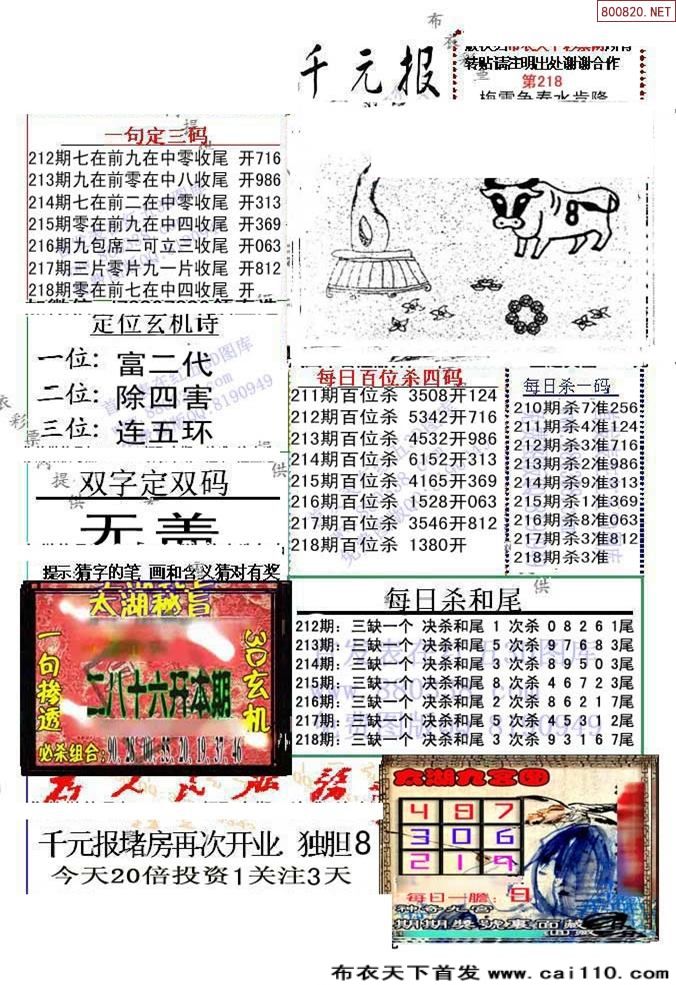 800820.NET
千元报
转贴请注明出处谢谢合作
第218
一句定三码
212期七在前九在中零收尾 开716
213期九在前零在中八收尾 开986
214期七在前二在中零收尾 开313
215期零在前九在中四收尾 开369
216期九包席二可立三收尾 开063
217期三片零片九一片收尾 开812
218期零在前七在中四收尾 开
8
定位玄机诗
一位: 富二代
二位: 除四害
三位: 连五环
每日百位杀四码
211期百位杀 3508开124
212期百位杀 5342开716
213期百位杀 4532开986
214期百位杀 6152开313
215期百位杀 4165开369
216期百位杀 1528开063
217期百位杀 3546开812
218期百位杀 1380开
每日杀一码
210期杀7准256
211期杀4准124
212期杀3准716
213期杀2准986
214期杀9准313
215期杀1准369
216期杀8准063
217期杀3准812
218期杀3准
双字定双码
无盖
提示:猜字的笔 画和含义猜对有奖
太湖秘旨
一句掺透
二八十六开本期
3D玄机
必杀组合: 90. 28. 00. 55. 20. 19. 37. 46
每日杀和尾
212期: 三缺一个 决杀和尾 1 次杀 0 8 2 6 1尾
213期: 三缺一个 决杀和尾 5 次杀 9 7 6 8 3尾
214期: 三缺一个 决杀和尾 3 次杀 8 9 5 0 3尾
215期: 三缺一个 决杀和尾 8 次杀 4 6 7 2 3尾
216期: 三缺一个 决杀和尾 2 次杀 8 6 2 1 7尾
217期: 三缺一个 决杀和尾 5 次杀 4 5 3 1 2尾
218期: 三缺一个 决杀和尾 3 次杀 9 3 1 6 7尾
千元报堵房再次开业 独胆8
今天20倍投资1关注3天
太湖九宫图
4 9 7
3 0 6
2 1 9
每日一胆: 8
布衣天下首发 www.cai110.com